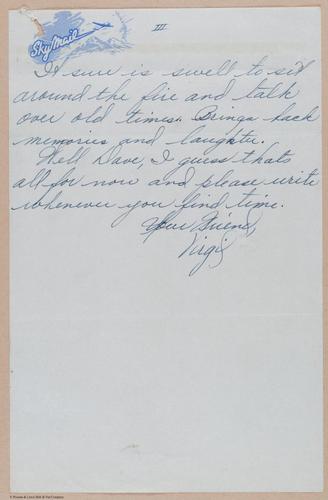 Sky Mail
III
It sure is swell to sit
around the fire and talk
over old times. Brings back
memories and laughter.
Well Dave, I guess thats
all for now and please write
whenever you find time.
Your Friend,
Virgil